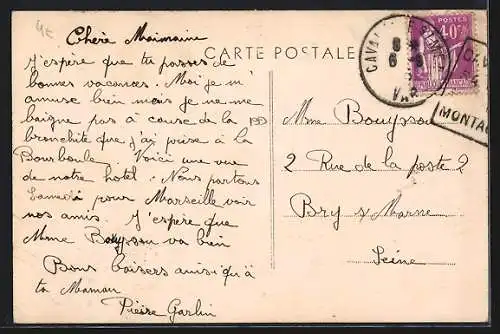 4€
Chère Maimaine
J'espère que tu passes de
bonnes vacances. Moi je m'
amuse bien mais je ne me
baigne pas à cause de la
bronchite que j'ai prise à la
Bourboule. Voici une vue
de notre hotel. Nous partons
Samedi pour Marseille voir
nos amis. J'espère que
Mme Bouyssou va bien
Bons baisers ainsi qu'à
ta Maman
Pierre Garlin
CARTE POSTALE
POSTES
40c
VAR
MONTAG
Mme Bouyssou
2 Rue de la poste 2
Bry s/ Marne
Seine